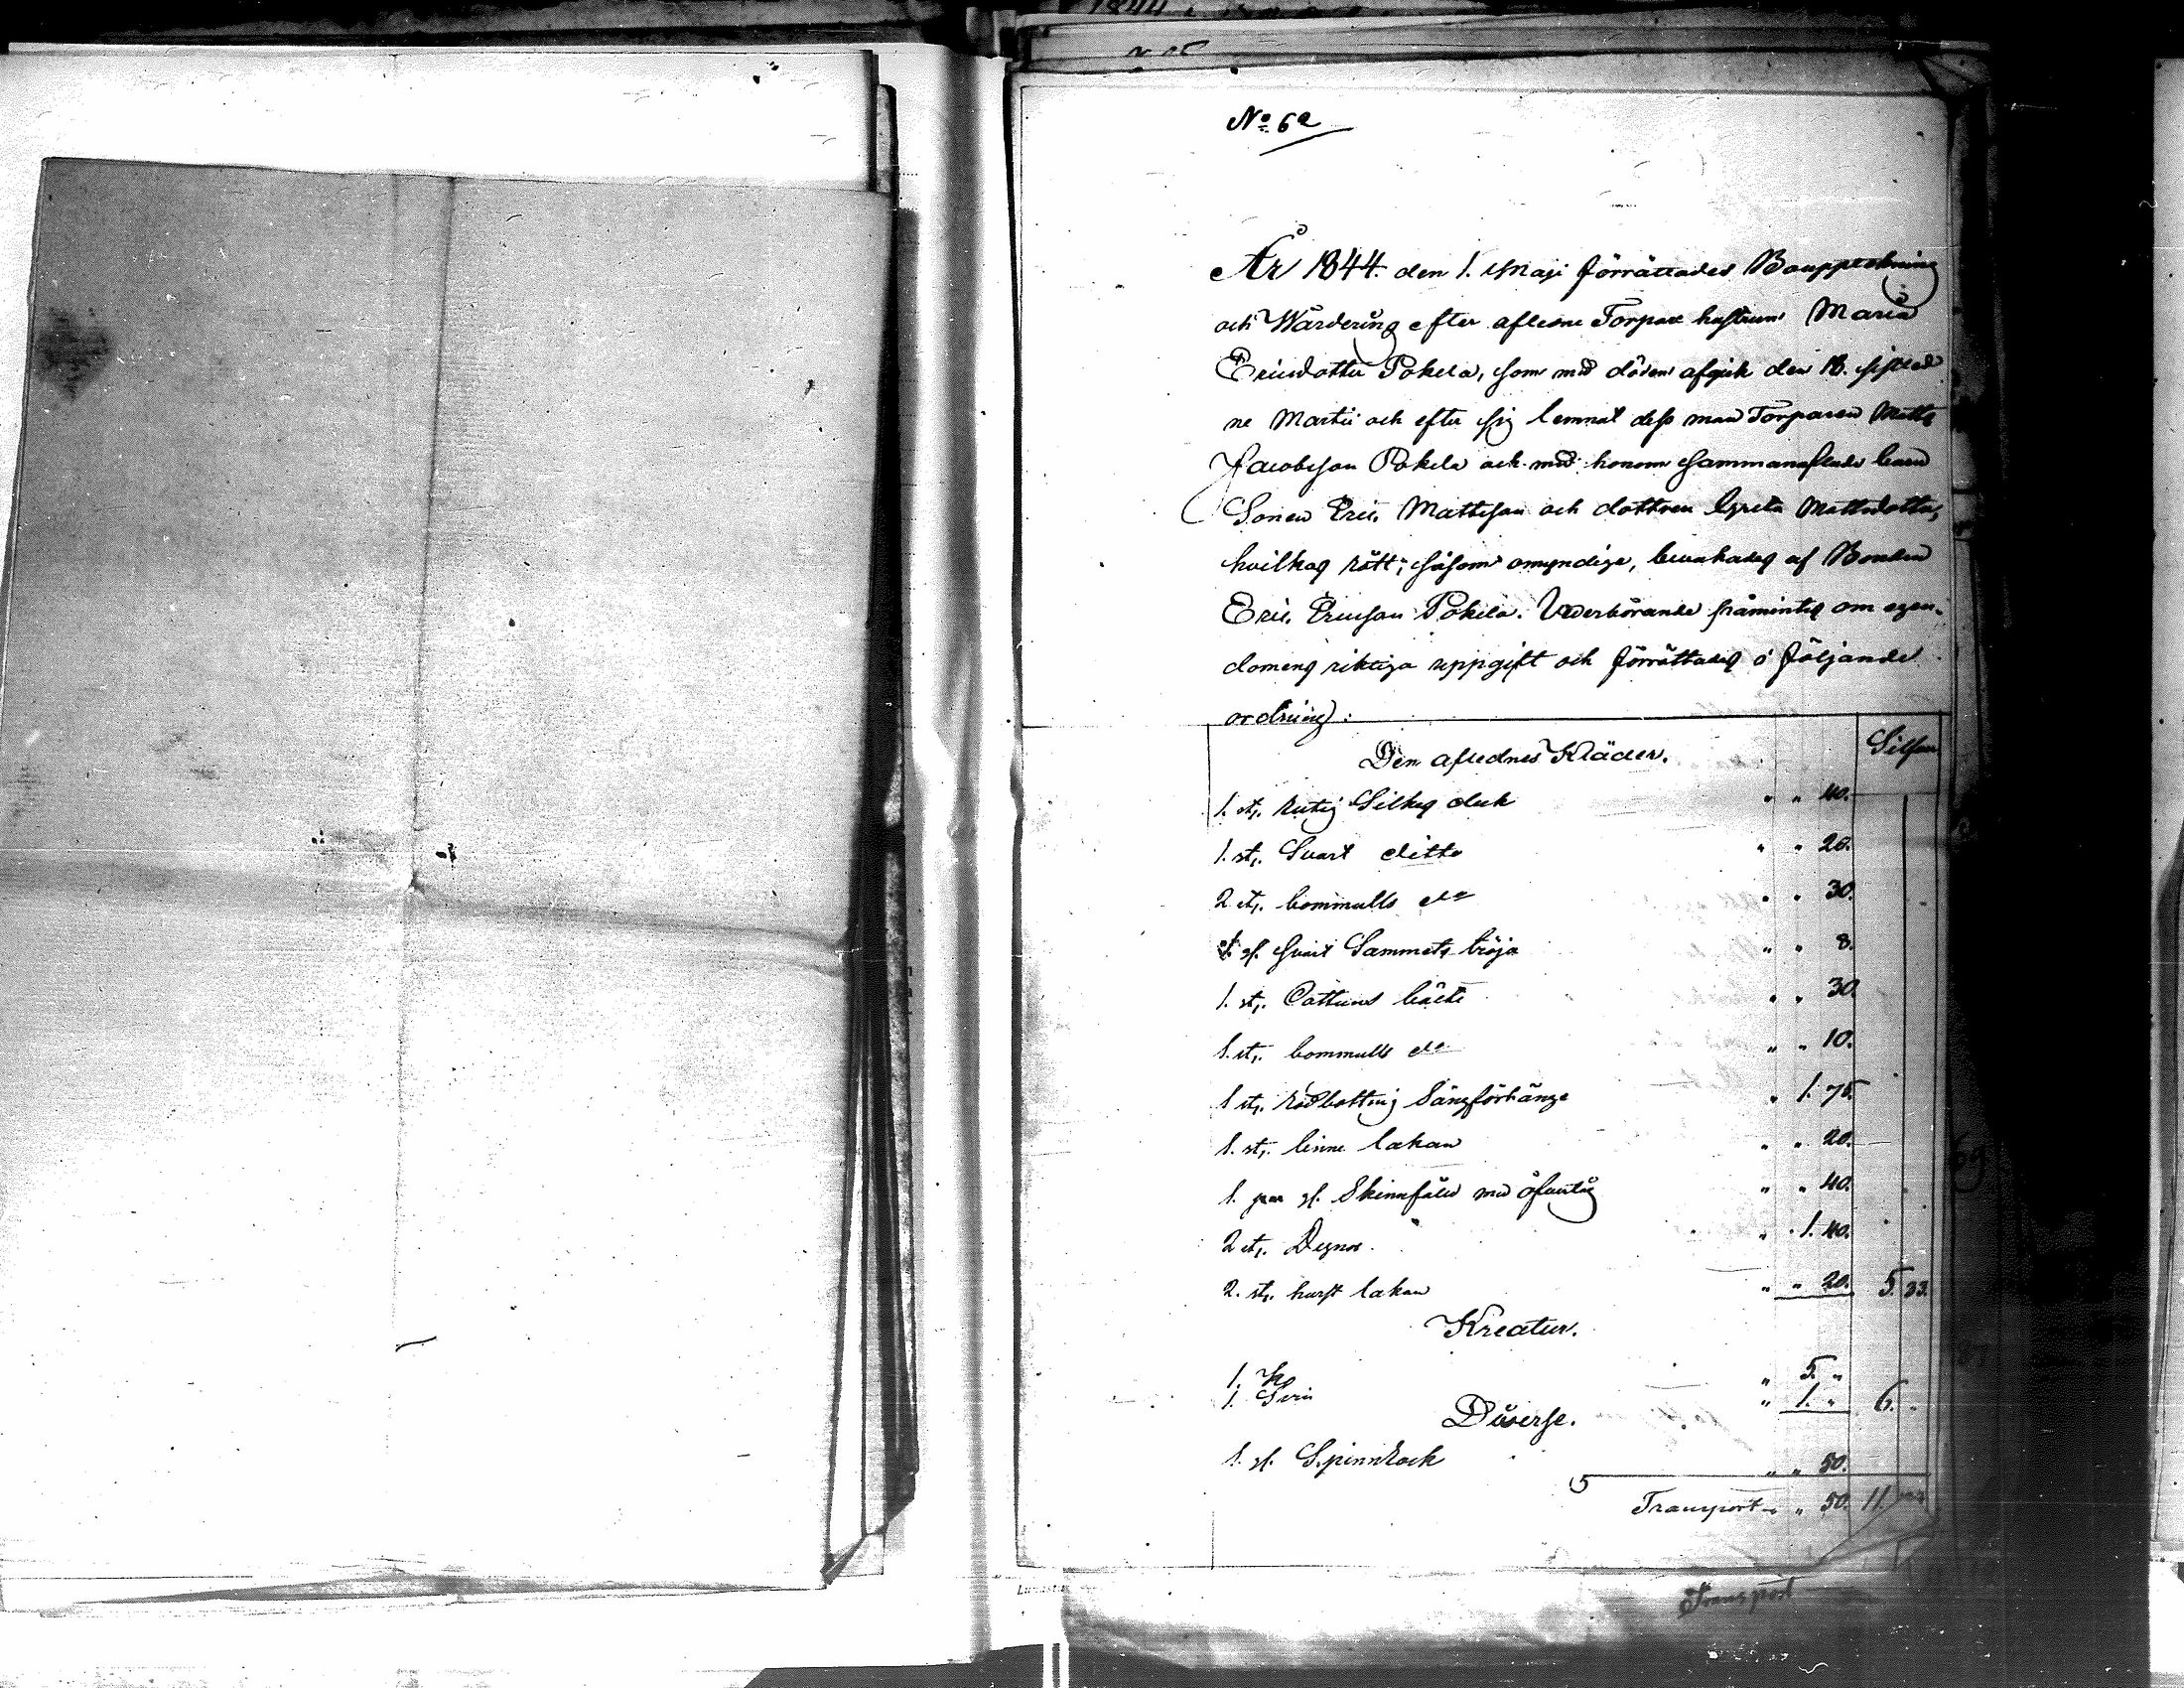 No 62
År 1844. den 1. Maji förrättades Bouppteckning
och Wärdering efter afledne Torpare hustrun Maria
Ericsdotter Pokela, som med döden afgick den 18. sistled
ne Martii och efter sig lemnat dess man Torparen Matts
Jacobsson Pokela och med honom sammanaflade barn
Sonen Eric Mattsson och dottren Greta Mattsdotter,
hvilkas rätt, såsom omyndige, bevakades af Bonden
Eric Ericsson Pokela. Vederbörande påmintes om egen-
domens riktiga uppgift och förrättades i följande
ordning:
Silfver
Den aflednes Kläder.
1. st. rutig Silkes duk " " 40.
1. st. Svart ditto " " 20.
2 st. bommulls do " " 30.
1. gl. svart Sammets tröja " " 8.
1. st. Cattuns " " 30.
1. st. bommulls do " " 10.
1 st. rödbottnig Sängförhänge " 1. 75.
1. st. linne lakan " " 20.
1. par gl. Skinnfäld med " " 40.
2 st. Degnor " 1. 40.
2. st. hurst lakan " " 20. 5. 33.
Kreatur.
1. Ko " 5. "
1. Svin " 1. " 6. "
Diverse.
1. gl. Spinnrock " " 50.
Transport " " 50. 11.
Transport